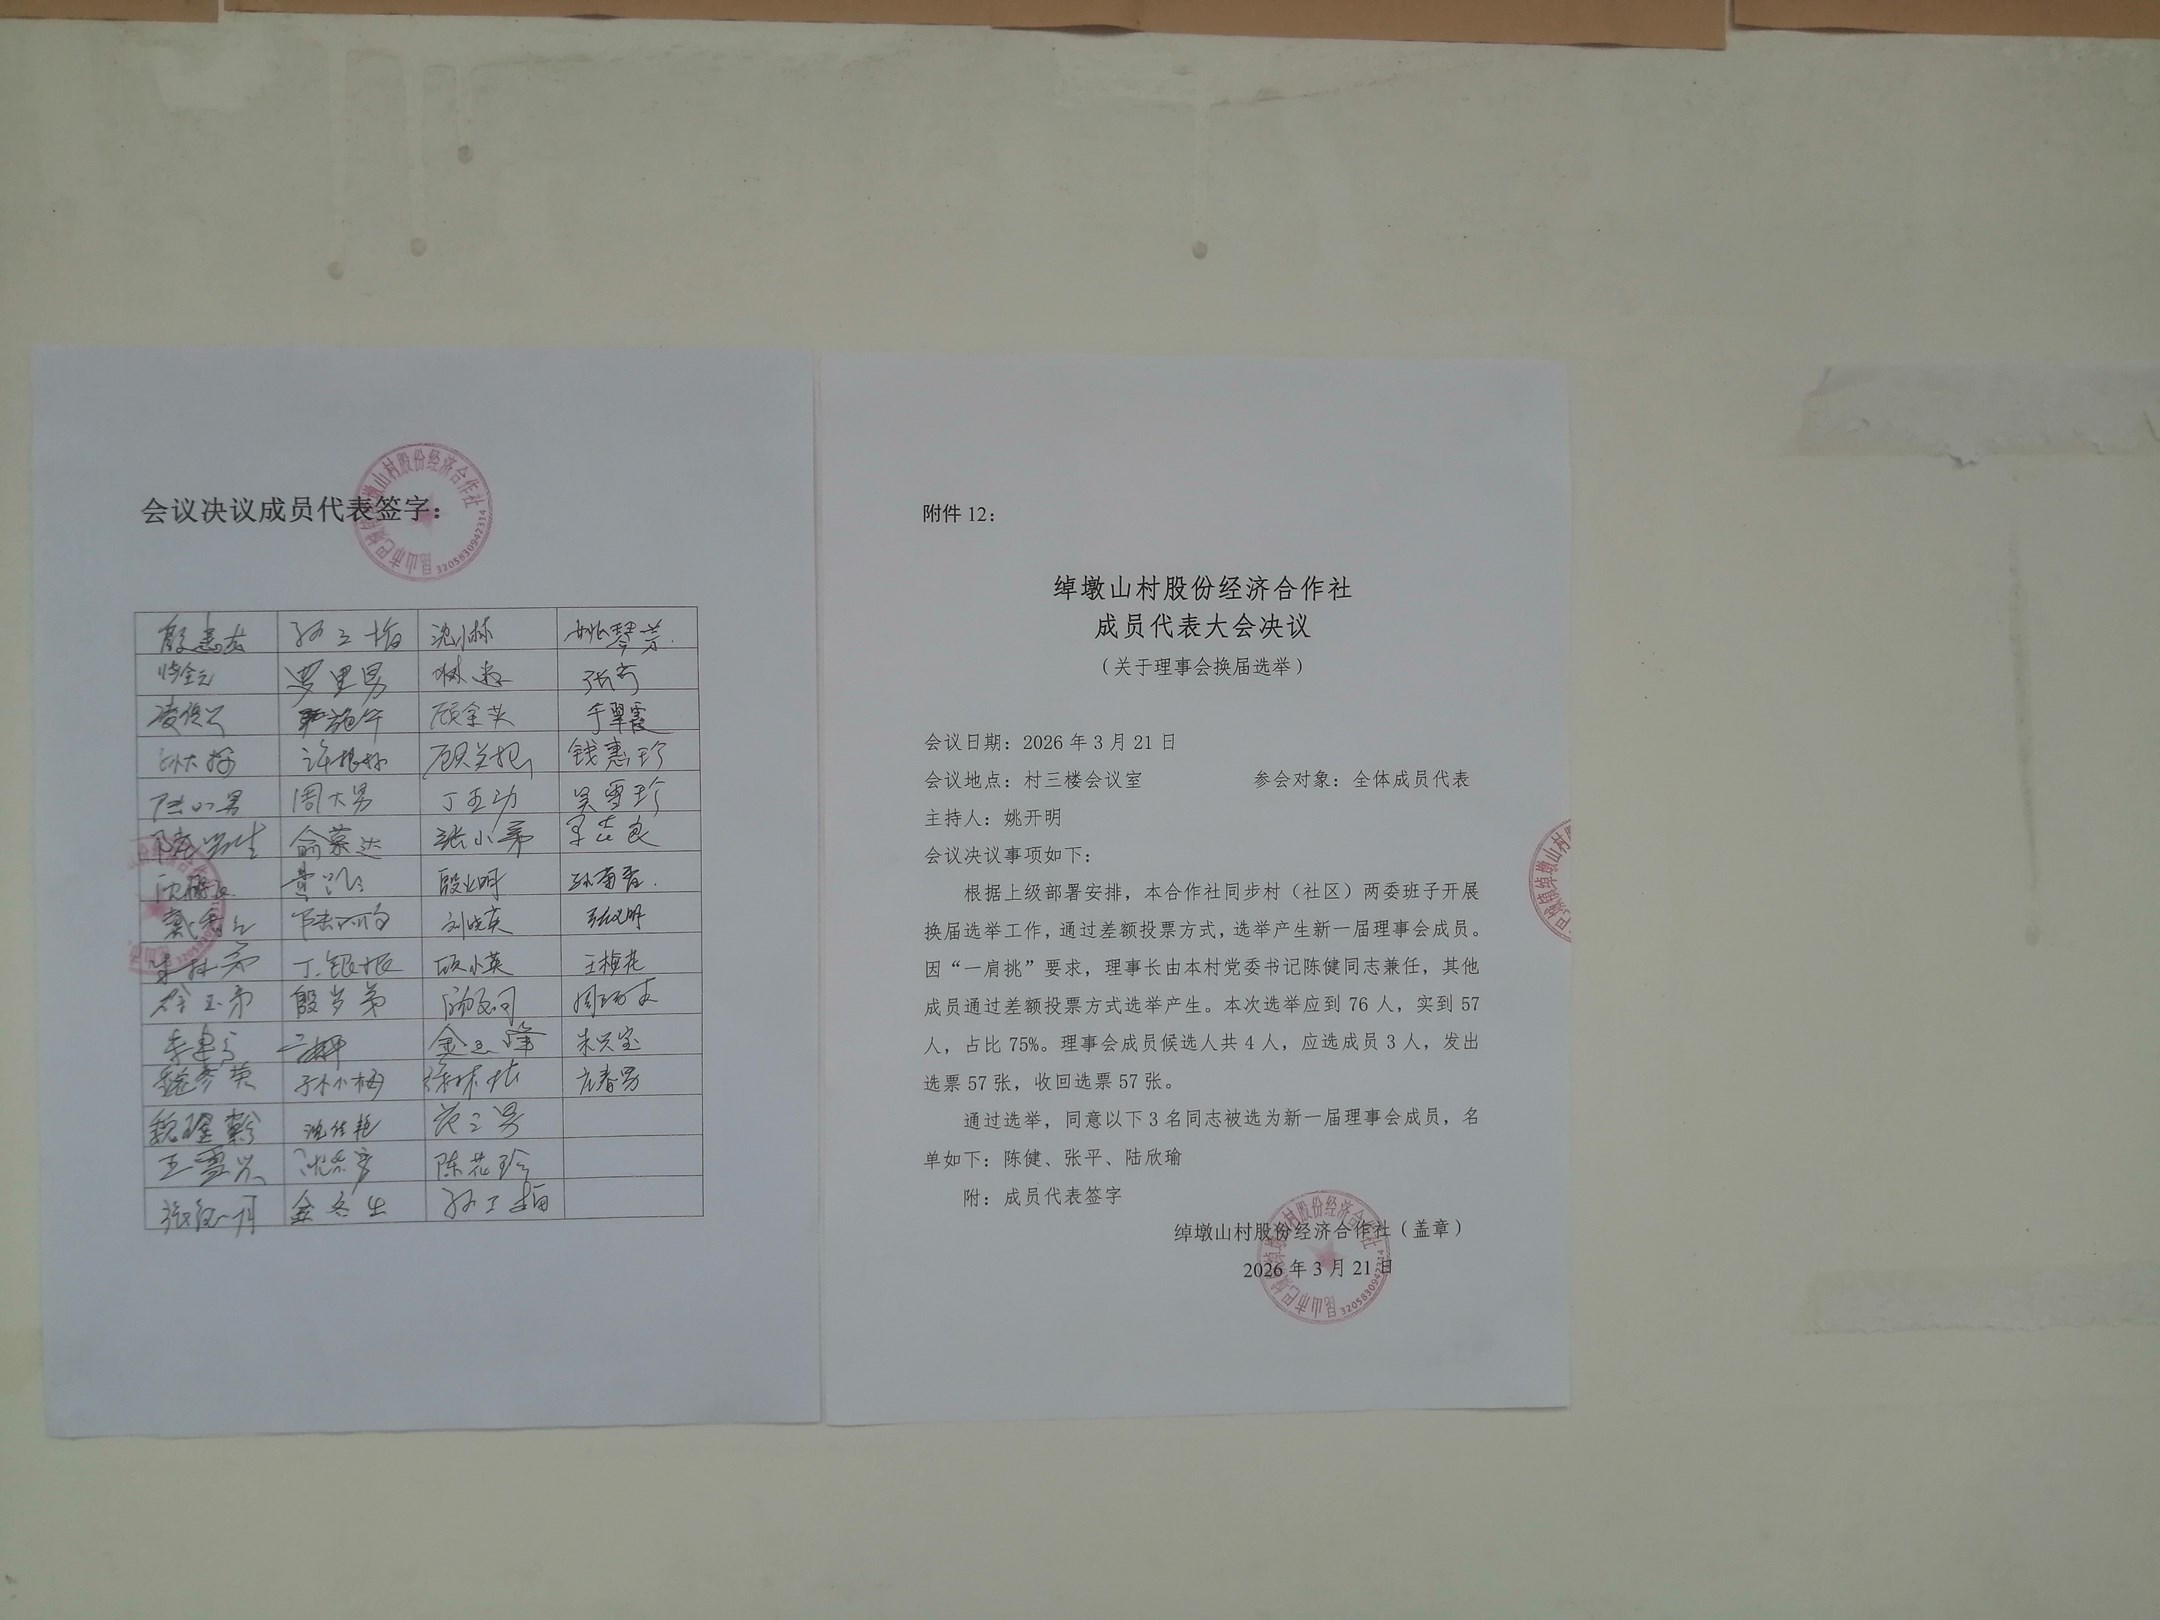 会议决议成员代表签字：
孙三梅 沈小林 姚琴芳
罗里男
顾金英 于翠霞
孙大梅 许根妹 顾关根 钱惠珍
周大男 丁五劲 吴雪珍
俞慕达 张小弟
殷火明 孙菊香
戴秀红 刘晓英
朱林弟 丁银根 顾小英 王梅花
殷岁弟
朱兴宝
魏彦英 孙小梅 徐林忠 尤春男
沈仕艳 范三男
王雪兴 陈花珍
金冬生 孙丁梅
昆山市巴城镇绰墩山村股份经济合作社
3205830942314
附件 12：
绰墩山村股份经济合作社
成员代表大会决议
（关于理事会换届选举）
会议日期：2026 年 3 月 21 日
会议地点：村三楼会议室 参会对象：全体成员代表
主持人：姚开明
会议决议事项如下：
根据上级部署安排，本合作社同步村（社区）两委班子开展
换届选举工作，通过差额投票方式，选举产生新一届理事会成员。
因“一肩挑”要求，理事长由本村党委书记陈健同志兼任，其他
成员通过差额投票方式选举产生。本次选举应到 76 人，实到 57
人，占比 75%。理事会成员候选人共 4 人，应选成员 3 人，发出
选票 57 张，收回选票 57 张。
通过选举，同意以下 3 名同志被选为新一届理事会成员，名
单如下：陈健、张平、陆欣瑜
附：成员代表签字
绰墩山村股份经济合作社（盖章）
2026 年 3 月 21 日
昆山市巴城镇绰墩山村股份经济合作社
3205830942314